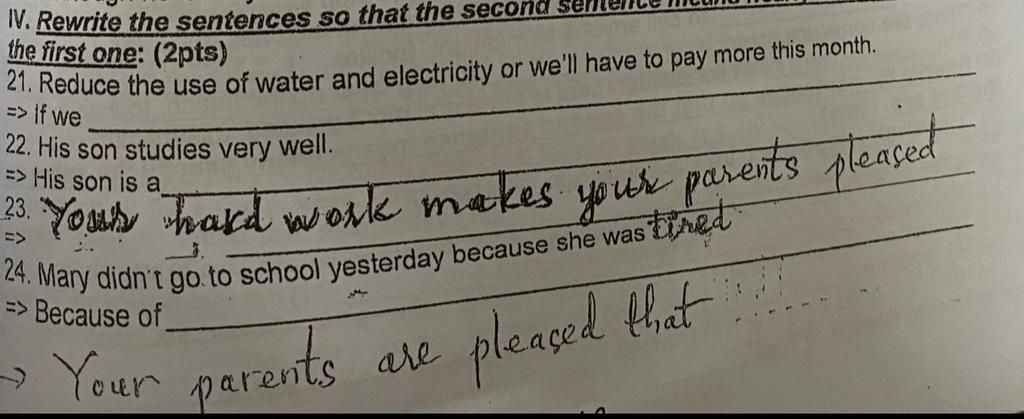 IV. Rewrite the sentences so that the second sentence means
the first one: (2pts)
21. Reduce the use of water and electricity or we'll have to pay more this month.
=> If we
22. His son studies very well.
=> His son is a
23. Your hard work makes your parents pleased
=>
24. Mary didn't go to school yesterday because she was tired
=> Because of
→ Your parents are pleased that ..........